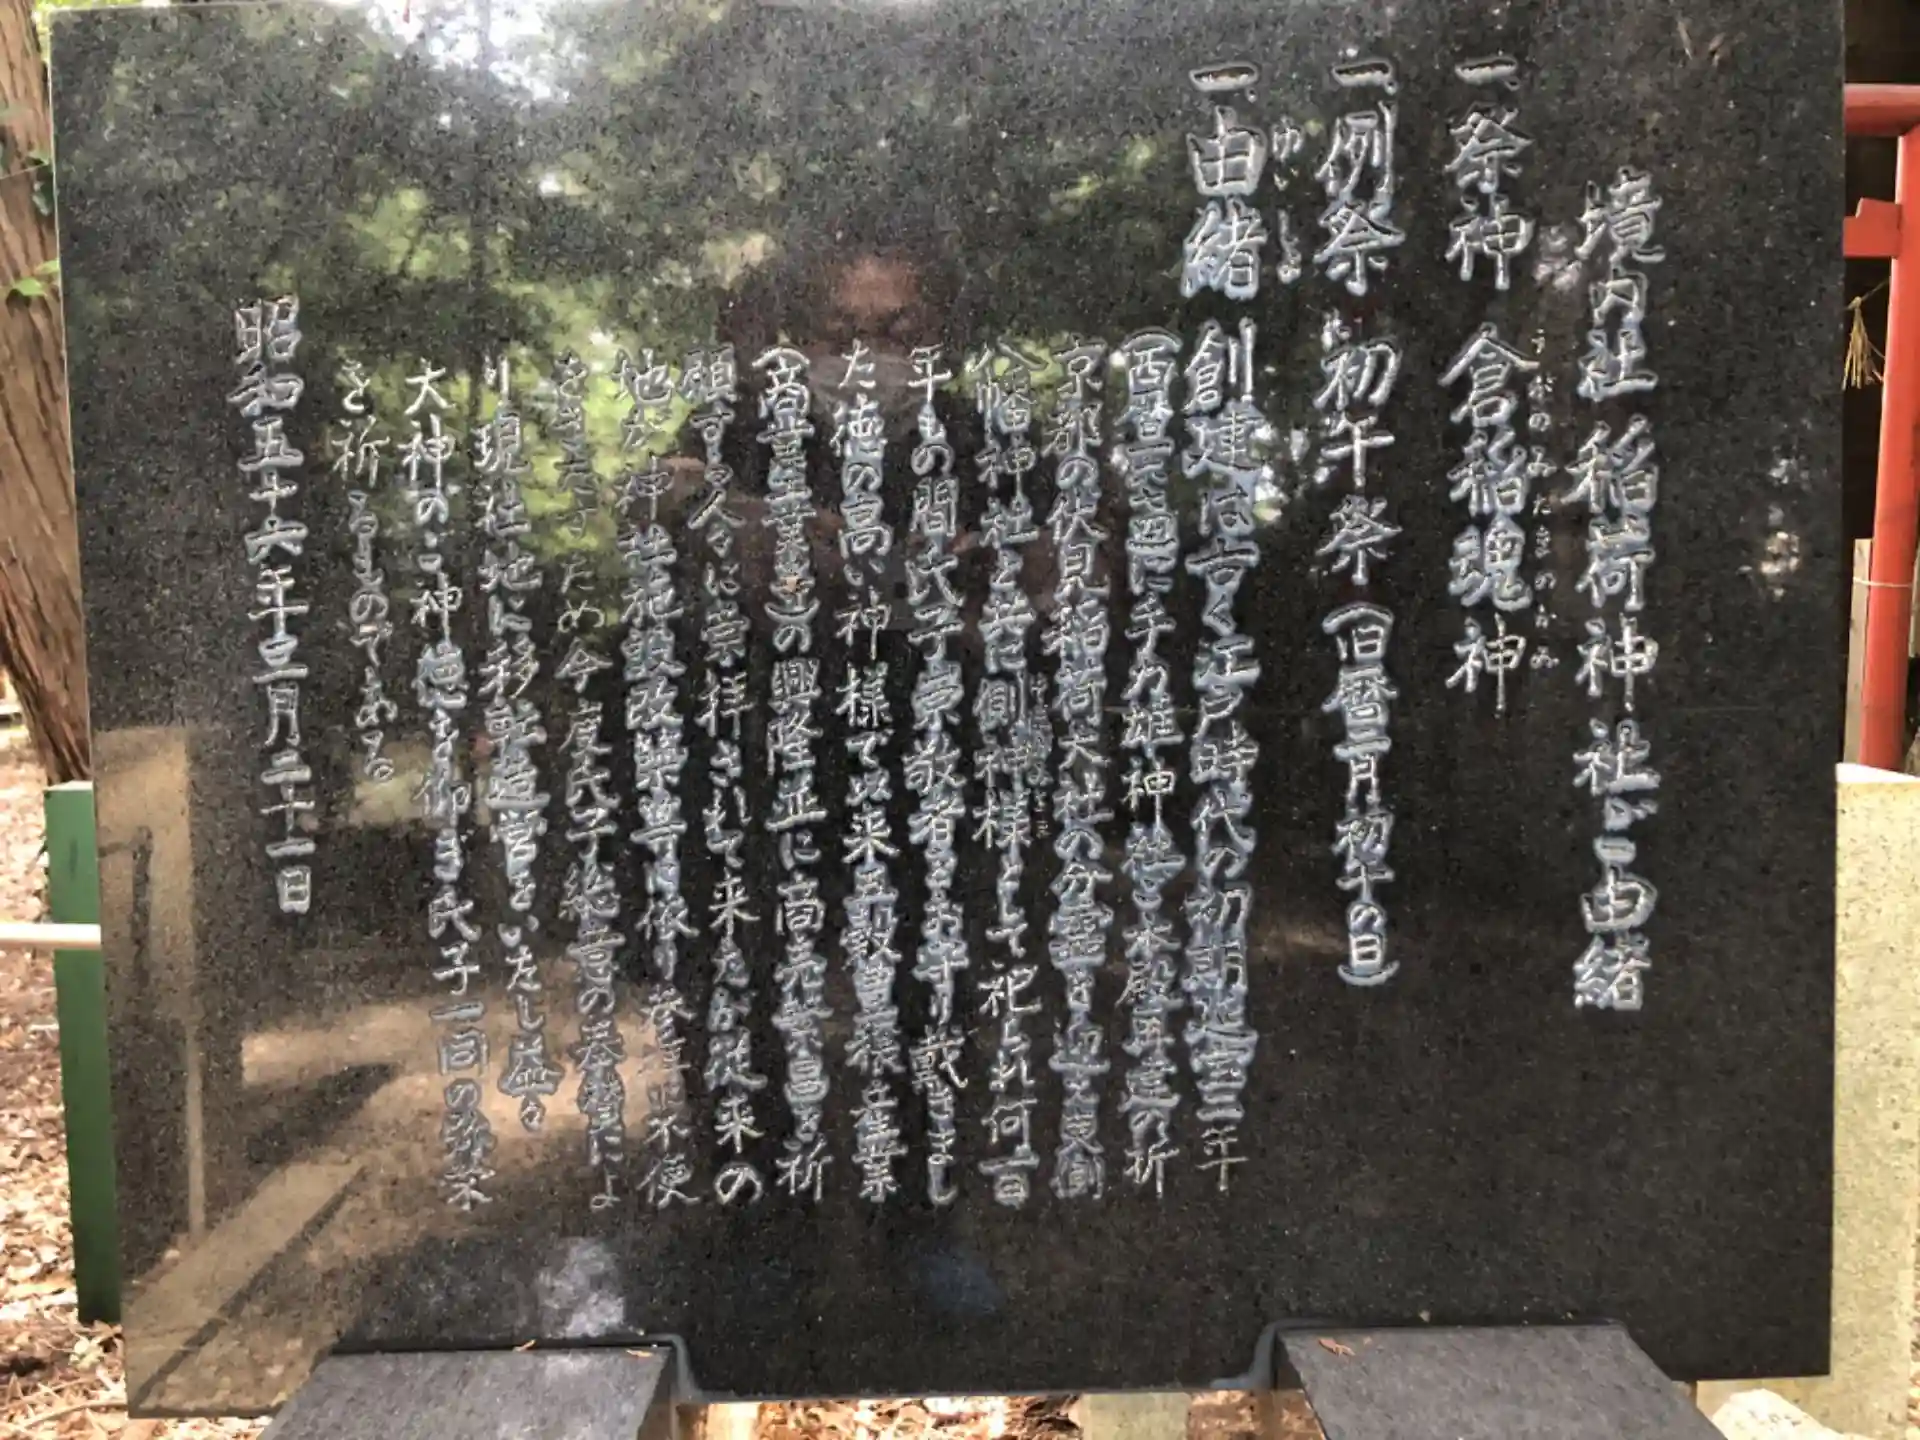 境内社 稲荷神社ご由緒
一、祭神 倉稲魂神
うがのみたまのかみ
一、例祭 初午祭(旧暦二月初午の日)
一、由緒 創建は古く江戸時代の初期延宝三年
ゆいしょ
(西暦一六七五)に手力雄神社と本殿再建の折
京都の伏見稲荷大社の分霊を迎え東側
八幡神社と共に側神様として祀られ何百
年もの間氏子崇敬者をお守り戴きまし
た徳の高い神様で以来五穀豊穣産業
(商業工業)の興隆並に商売繁昌を祈
願する人々に崇拝されて来たが従来の
地が神社施設改築等に依り参拝に不便
をきたすため今度氏子総意の奉賛によ
り現社地に移転造営をいたし益々
大神のご神徳を仰ぎ氏子一同の弥栄
を祈るものである
昭和五十六年三月二十一日